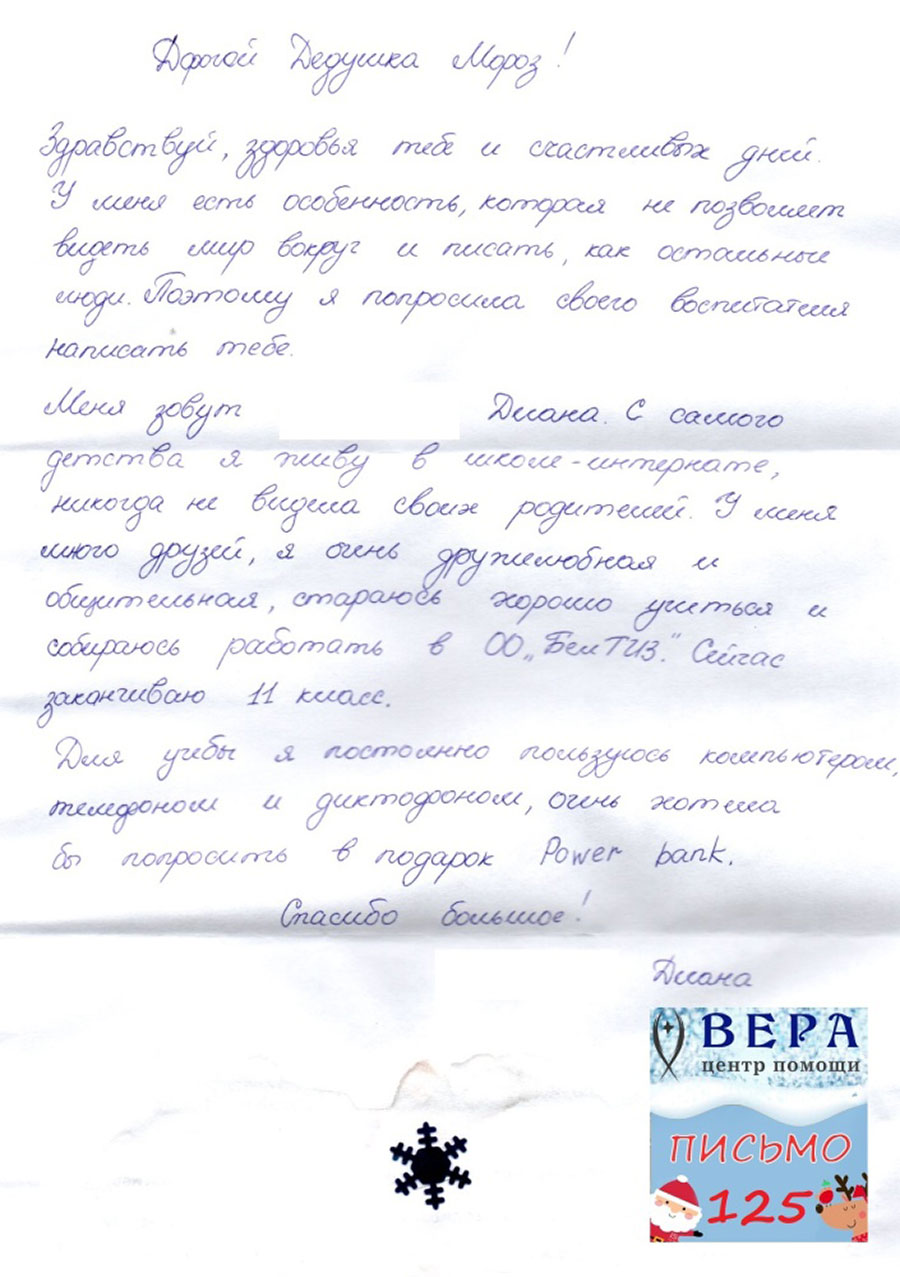 Дорогой Дедушка Мороз!
Здравствуй, здоровья тебе и счастливых дней.
У меня есть особенность, которая не позволяет
видеть мир вокруг и писать, как остальные
люди. Поэтому я попросила своего воспитателя
написать тебе.
Меня зовут Диана. С самого
детства я живу в школе-интернате,
никогда не видела своих родителей. У меня
много друзей, я очень дружелюбная и
общительная, стараюсь хорошо учиться и
собираюсь работать в ОО „БелТИЗ." Сейчас
заканчиваю 11 класс.
Для учебы я постоянно пользуюсь компьютером,
телефоном и диктофоном, очень хотела
бы попросить в подарок Power bank.
Спасибо большое!
Диана
ВЕРА
центр помощи
ПИСЬМО
125